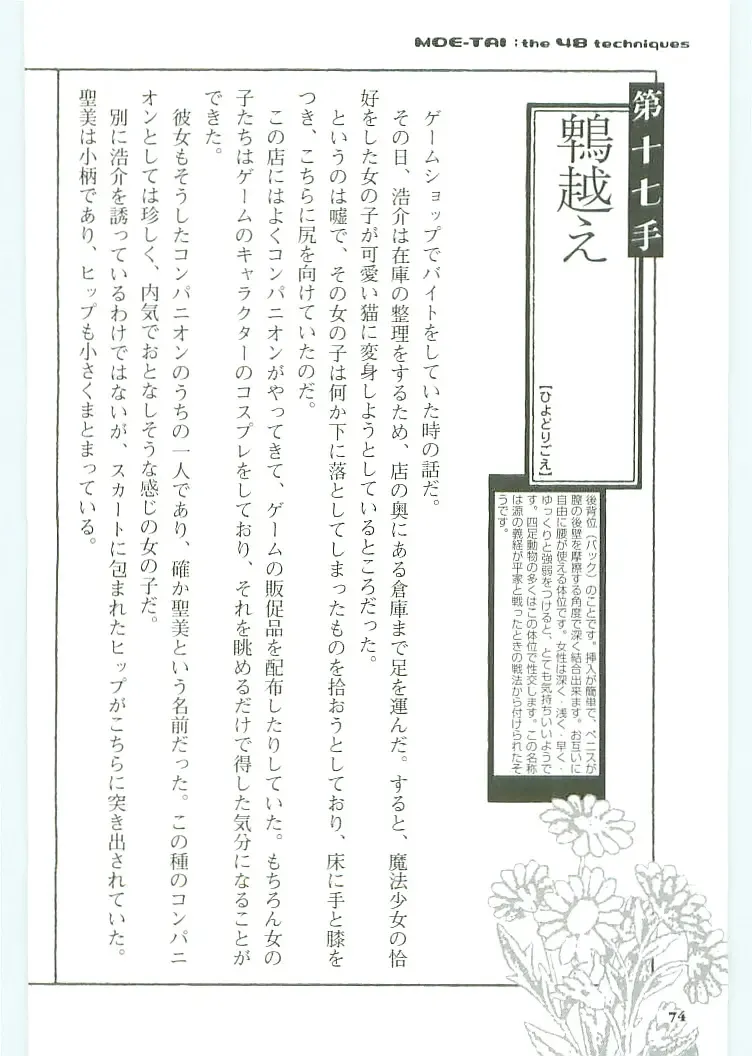 MOE-TAI : the 48 techniques
第十七手
鵯越え
【ひよどりごえ】
後背位（バック）のことです。挿入が簡単で、ペニスが
膣の後壁を摩擦する角度で深く結合出来ます。お互いに
自由に腰が使える体位です。女性は深く・浅く・早く・
ゆっくりと強弱をつけると、とても気持ちいいようで
す。四足動物の多くはこの体位で性交します。この名称
は源の義経が平家と戦ったときの戦法から付けられたそ
うです。
ゲームショップでバイトをしていた時の話だ。
その日、浩介は在庫の整理をするため、店の奥にある倉庫まで足を運んだ。すると、魔法少女の恰
好をした女の子が可愛い猫に変身しようとしているところだった。
というのは嘘で、その女の子は何か下に落としてしまったものを拾おうとしており、床に手と膝を
つき、こちらに尻を向けていたのだ。
この店にはよくコンパニオンがやってきて、ゲームの販促品を配布したりしていた。もちろん女の
子たちはゲームのキャラクターのコスプレをしており、それを眺めるだけで得した気分になることが
できた。
彼女もそうしたコンパニオンのうちの一人であり、確か聖美という名前だった。この種のコンパニ
オンとしては珍しく、内気でおとなしそうな感じの女の子だ。
別に浩介を誘っているわけではないが、スカートに包まれたヒップがこちらに突き出されていた。
聖美は小柄であり、ヒップも小さくまとまっている。
74